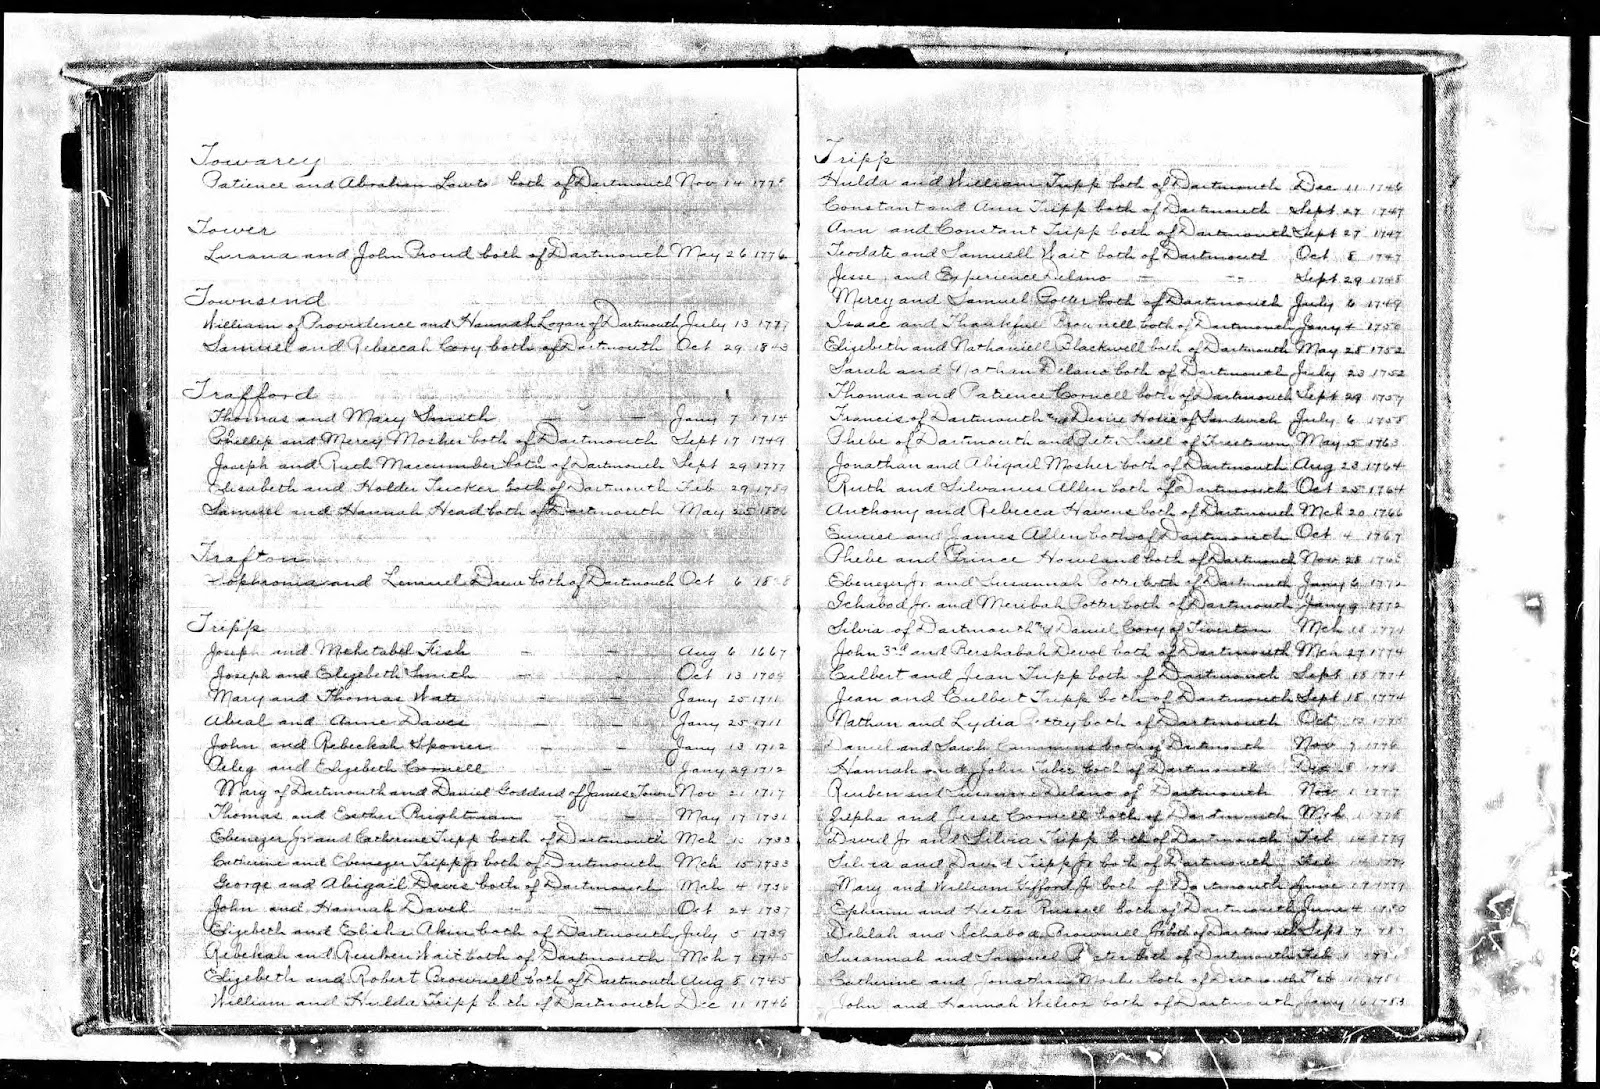 Towarey
Patience and Abraham Lawto both of Dartmouth Nov 14
Tower
Lurana and John Proud both of Dartmouth May 26 1776
Townsend
William of Providence and Hannah Logan of Dartmouth July 13 1777
Samuel and Rebeccah Cory both of Dartmouth Oct 29 1843
Trafford
Thomas and Mary Smith - - Jany 7 1714
Phillip and Mercy Mosher both of Dartmouth Sept 17 1749
Joseph and Ruth Maccumber both of Dartmouth Sept 29 1777
Elisabeth and Holder Tucker both of Dartmouth Feb 29 1789
Samuel and Hannah Head both of Dartmouth May 25 1806
Trafton
Sophronia and Lemuel Dawe both of Dartmouth Oct 6
Tripp
Joseph and Mehetabel Fish - - Aug 6 1667
Joseph and Elizebeth Smith - - Oct 13 1709
Mary and Thomas Wate - - Jany 25 1711
Abial and Anne Daves - - Jany 25 1711
John and Rebeckah Sponer - - Jany 13 1712
Peleg and Elizebeth Cornell - - Jany 29 1712
Mary of Dartmouth and Daniel Goddard of James Town Nov 21 1717
Thomas and Esther Brightman - - May 17 1731
Ebenezer Jr and Catherine Tripp both of Dartmouth Mch 1733
Catherine and Ebenezer Tripp Jr both of Dartmouth Mch 15 1733
George and Abigail Davis both of Dartmouth Mch 4 1736
John and Hannah Davel - Oct 24 1737
Elizebeth and Elisha Akin both of Dartmouth July 5 1739
Rebekah and Reuben Wait both of Dartmouth Mch 7 1745
Elizebeth and Robert Brownell both of Dartmouth Aug 8 1745
William and Hulda Tripp both of Dartmouth Dec 11 1746
Tripp
Hulda and William Tripp both of Dartmouth Dec 11 1746
Constant and Ann Tripp both of Dartmouth Sept 27 1747
Ann and Constant Tripp both of Dartmouth Sept 27 1747
Teodate and Samuell Wait both of Dartmouth Oct 8 1747
Jesse and Experience Delano - - Sept 29 1748
Mercy and Samuel Potter both of Dartmouth July 6 1749
Isaac and Thankfull Brownell both of Dartmouth Jany 4 1750
Elizebeth and Nathaniell Blackwell both of Dartmouth May 28 1752
Sarah and Nathan Delano both of Dartmouth July 23 1752
Thomas and Patience Cornell both of Dartmouth Sept 29 1757
Francis of Dartmouth and Desire Hoxie of Sandwich July 6 1758
Phebe of Dartmouth and Peter Snell of Freetown May 5 1763
Jonathan and Abigail Mosher both of Dartmouth Aug 23 1764
Ruth and Silvanus Allen both of Dartmouth Oct 25 1764
Anthony and Rebecca Havens both of Dartmouth Mch 20 1766
Eunice and James Allen both of Dartmouth Oct 4 1767
Phebe and Prince Howland both of Dartmouth Nov 28
Ebenezer Jr and Susannah both of Dartmouth Jany 6 1772
Ichabod Jr. and Meribah Potter both of Dartmouth Jany 9 1772
Silvia of Dartmouth and Daniel Cory of Tiverton Mch 18 1774
John 3rd and Bershabah Devol both of Dartmouth Mch 27 1774
Culbert and Jean Tripp both of Dartmouth Sept 18 1774
Jean and Culbert Tripp both of Dartmouth Sept 18 1774
Nathan and Lydia Pottey both of Dartmouth Oct
Daniel and Sarah Cummins both of Dartmouth Nov 7 1776
Hannah and John Taber both of Dartmouth Dec 8
Reuben and Susanna Delano of Dartmouth Nov 1 1777
Zilpha and Jesse Cornell both of Dartmouth Mch
David Jr and Silvia Tripp both of Dartmouth Feb 14 1779
Silvia and David Tripp Jr both of Dartmouth Feb 14 1779
Mary and William Gifford Jr both of Dartmouth June 17 1779
Ephraim and Hester Russell both of Dartmouth June 4 1780
Delilah and Ichabod Brownell Jr both of Dartmouth Sept 7
Susannah and Samuel both of Dartmouth Feb
Catherine and Jonathan Mosher both of Dartmouth Feb
John and Hannah Wilcox both of Dartmouth Jany 16 1783